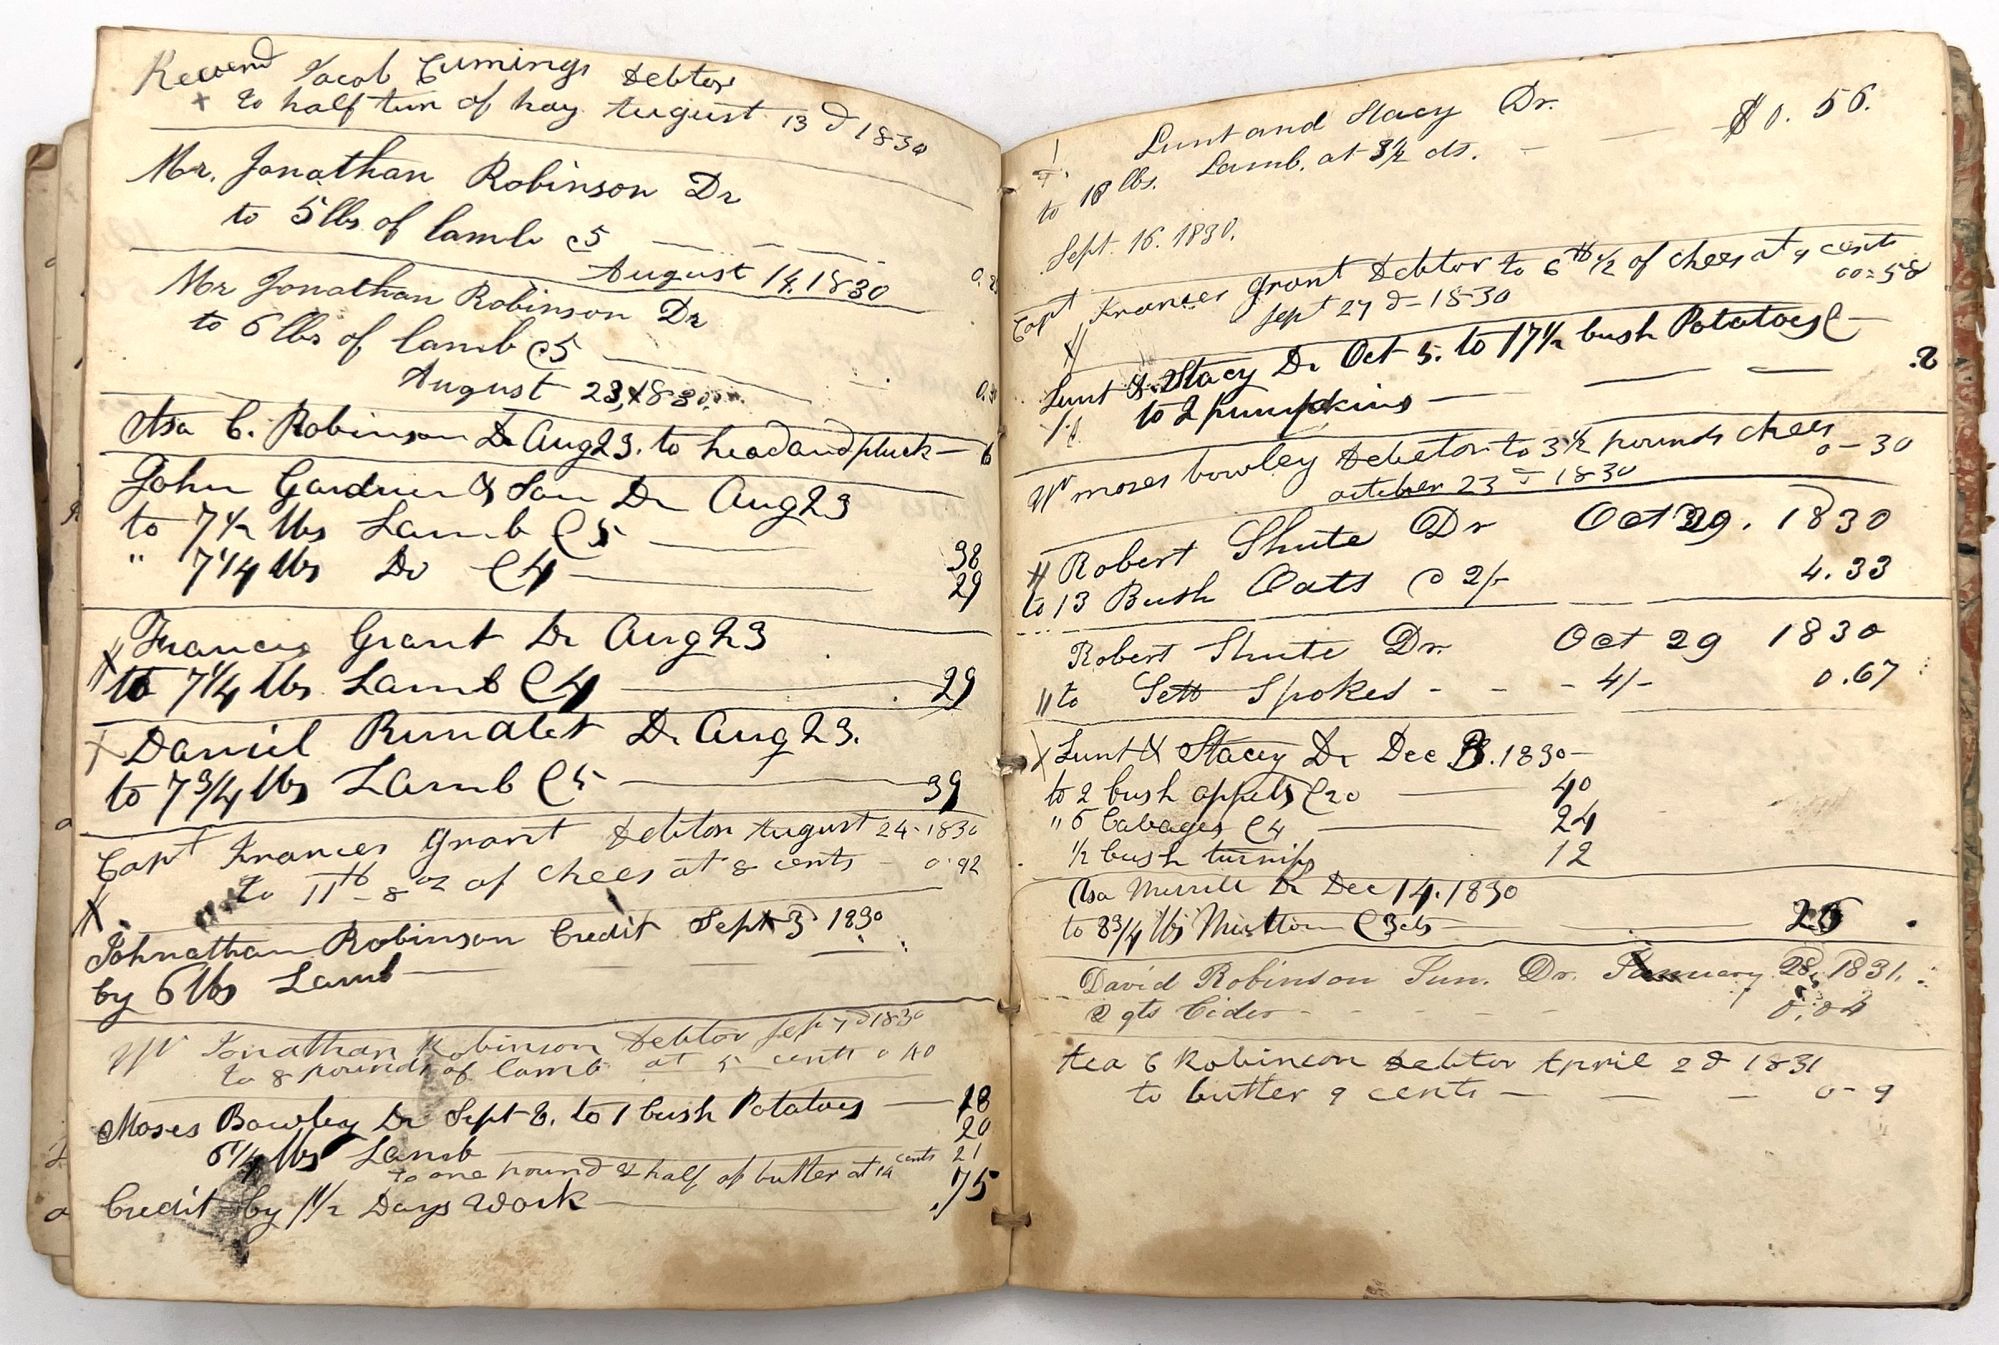 Reverend Jacob Cumings Debtor
x to half tun of hay August 13 d 1830
Mr. Jonathan Robinson Dr
to 5 lbs. of lamb @5 — — — 0.25
August 14, 1830
Mr Jonathan Robinson Dr
to 6 lbs of lamb @5 — 0.30
August 23, 1830.
Asa C. Robinson Dr Aug 23. to head and pluck — 6
John Gardner & Son Dr Aug 23
to 7 1/2 lbs Lamb @5 — 38
" 7 1/4 lbs Do @4 — 29
Francis Grant Dr Aug 23
to 7 1/4 lbs Lamb @4 — 29
Daniel Rundlet Dr Aug 23.
to 7 3/4 lbs Lamb @5 — 39
Capt Frances Grant Debtor August 24 - 1830
to 11 lb - 8 oz of chees at 8 cents - 0.92
Johnathan Robinson Credit Sept 3 1830
by 6 lbs Lamb —
Mr Jonathan Robinson Debtor Sep 7 d 1830
to 8 pounds of lamb at 5 cents 0 40
Moses Bowley Dr Sept 8. to 1 bush Potatoes — 18
6 1/4 lbs Lamb — 20
to one pound & half of butter at 14 cents 21
Credit by 1 1/2 Days Work — .75
Lunt and Stacy Dr.
to 18 lbs. Lamb. at 3 1/2 cts. — — $0. 56.
Sept. 16. 1830.
Capt Frances Grant Debtor to 6 lb 1/2 of chees at 9 cents
Sept 27 d - 1830 00=58
Lunt & Stacy Dr Oct 5. to 17 1/2 bush Potatoes @ —
to 2 pumpkins — — — .2
Mr moses bowley Debetor to 3 1/2 pounds chees
october 23 d 1830 0 - 30
Robert Shute Dr Oct 29. 1830
to 13 Bush Oats @ 2/- 4.33
Robert Shute Dr. Oct 29 1830
" to Sett Spokes - - - 4/- 0.67
x Lunt & Stacy Dr Dec 1830 —
to 2 bush appels @20 — 40
" 6 Cabages @4 — 24
1/2 bush turnips 12
Asa Merrill Dr Dec 14. 1830
to 8 3/4 lbs Mutton @3cts — 26
David Robinson Jun. Dr. January 28, 1831.
2 qts Cider - - - - 0.04
Asa C Robinson Debtor April 2 d 1831
to butter 9 cents — — — 0 - 9